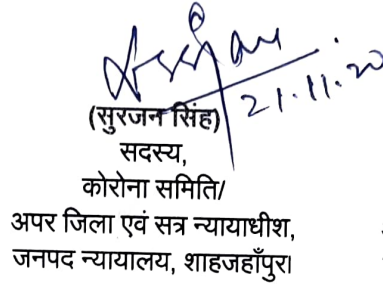 21.11.20
(सुरजन सिंह)
सदस्य,
कोरोना समिति/
अपर जिला एवं सत्र न्यायाधीश,
जनपद न्यायालय, शाहजहाँपुर।